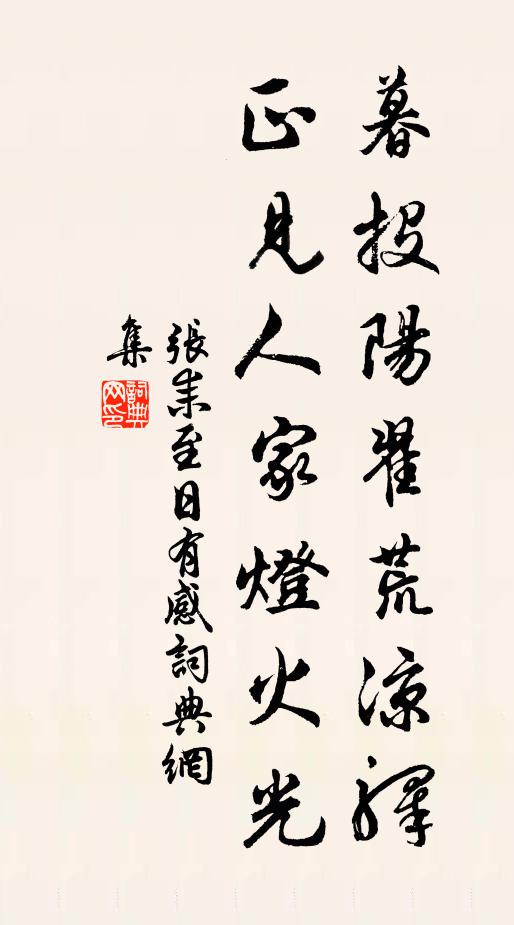 暮投陽翟荒涼驛
正見人家燈火光
張耒至日有感詞典網
集
詞典網印